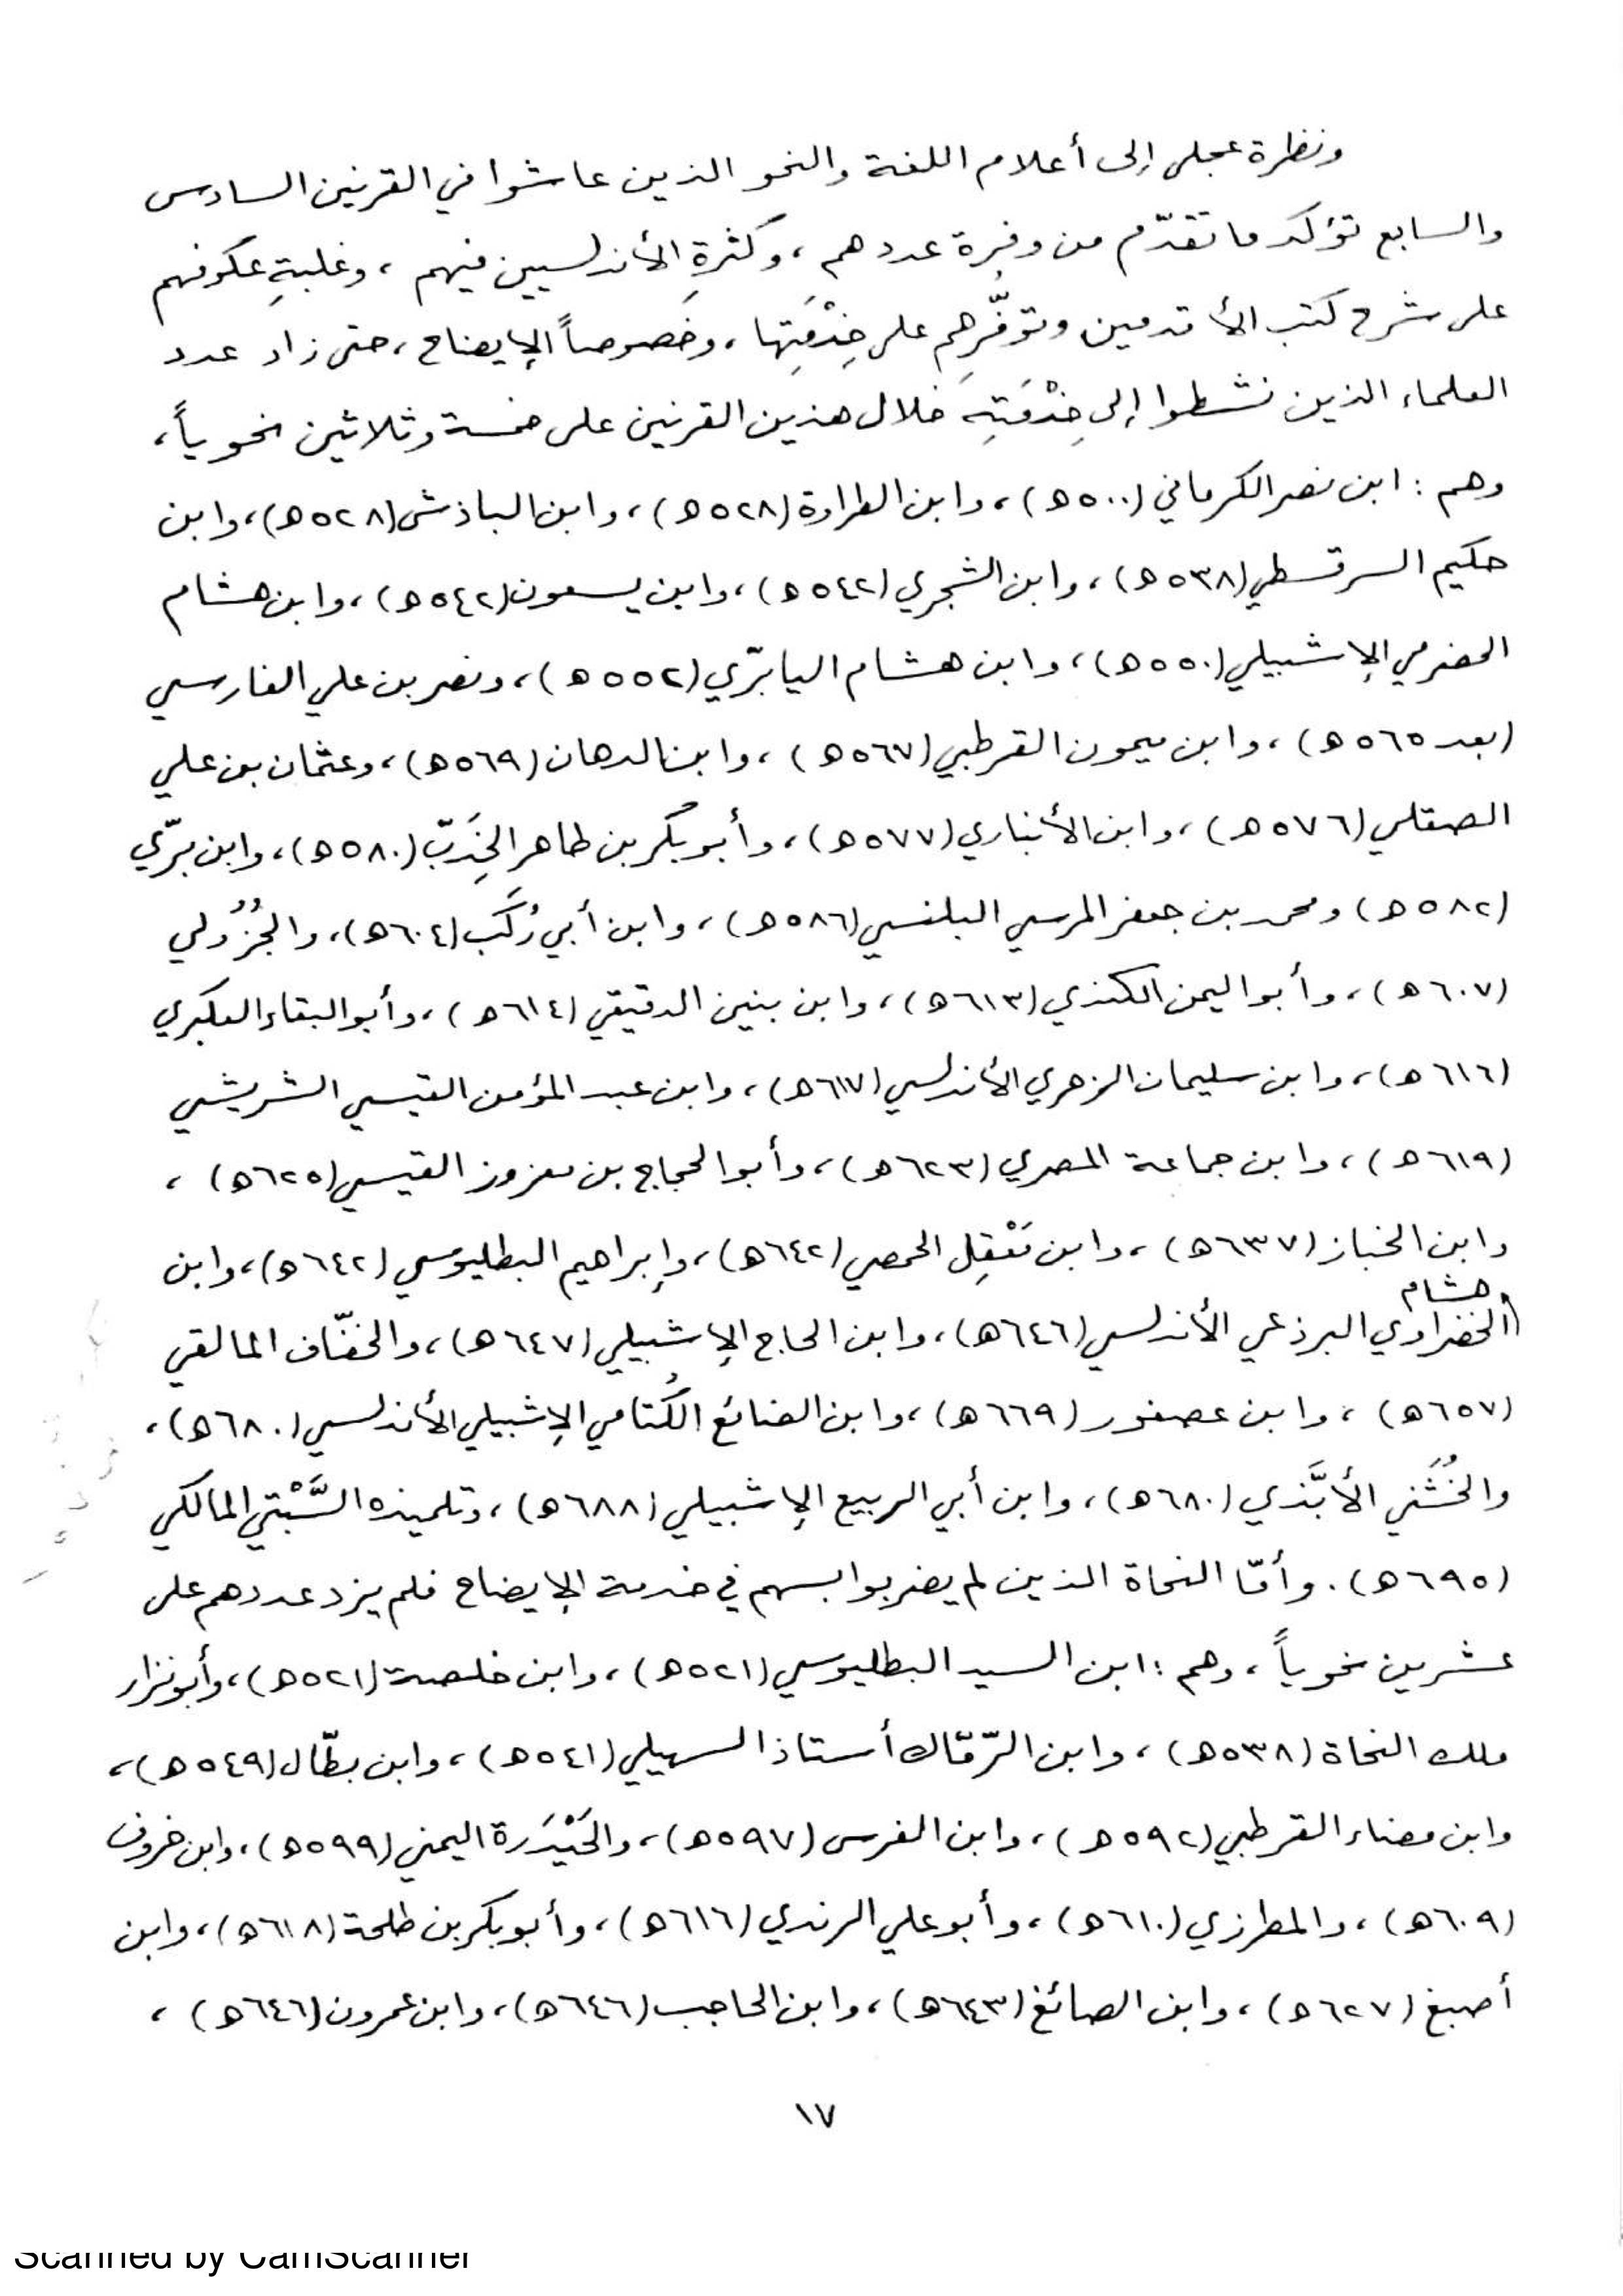 ونظرة عجلى إلى أعلام اللغة والنحو الذين عاشوا في القرنين السادس
والسابع تؤكد ما تقدّم من وفرة عددهم ، وكثرةِ الأندلسيين فيهم ، وغلبةِ عكوفهم
على شرح كتب الأقدمين وتوفُّرِهم على خِدْمَتِها ، وخَصوصاً الإيضاح ، حتى زاد عدد
العلماء الذين نشطوا إلى خِدْمَتِهِ خلال هذين القرنين على خمسة وثلاثين نحوياً ،
وهم : ابن نصر الكرماني (٥٠٠ھ) ، وابن الطراوة (٥٢٨ھ) ، وابن الباذش (٥٢٨ھ) ، وابن
حكيم السرقسطي (٥٣٨ھ) ، وابن الشجري (٥٤٢ھ) ، وابن يسعون (٥٤٢ھ) ، وابن هشام
الحضرمي الإشبيلي (٥٥٠ھ) ، وابن هشام اليابرّي (٥٥٢ھ) ، ونصر بن علي الفارسي
(بعد ٥٦٥ھ) ، وابن ميمون القرطبي (٥٦٧ھ) ، وابن الدهان (٥٦٩ھ) ، وعثمان بن علي
الصقلي (٥٧٦ھ) ، وابن الأنباري (٥٧٧ھ) ، وأبو بكر بن طاهر الخِدَبّ (٥٨٠ھ) ، وابن برّي
(٥٨٢ھ) ومحمد بن جعفر المرسي البلنسي (٥٨٦ھ) ، وابن أبي رُكَب (٦٠٤ھ) ، والجُزُولي
(٦٠٧ھ) ، وأبو اليمن الكندي (٦١٣ھ) ، وابن بنين الدقيقي (٦١٤ھ) ، وأبو البقاء العكبري
(٦١٦ھ) ، وابن سليمان الزهري الأندلسي (٦١٧ھ) ، وابن عبد المؤمن القيسي الشريشي
(٦١٩ھ) ، وابن جماعة المصري (٦٢٣ھ) ، وأبو الحجاج بن معزوز القيسي (٦٢٥ھ) ،
وابن الخباز (٦٣٧ھ) ، وابن مَعْقِل الحمصي (٦٤٢ھ) ، وإبراهيم البطليوسي (٦٤٢ھ) ، وابن
هشام
الخضراوي البرذعي الأندلسي (٦٤٦ھ) ، وابن الحاج الإشبيلي (٦٤٧ھ) ، والخفّاف المالقي
(٦٥٧ھ) ، وابن عصفور (٦٦٩ھ) ، وابن الضائع الكُتامي الإشبيلي الأندلسي (٦٨٠ھ) ،
والخُشَني الأبَّذي (٦٨٠ھ) ، وابن أبي الربيع الإشبيلي (٦٨٨ھ) ، وتلميذه السَّبْتي المالكي
(٦٩٥ھ) . وأمّا النحاة الذين لم يضربوا بسهم في خدمة الإيضاح فلم يزد عددهم على
عشرين نحوياً ، وهم : ابن السيد البطليوسي (٥٢١ھ) ، وابن خلصة (٥٢١ھ) ، وأبو نزار
ملك النحاة (٥٣٨ھ) ، وابن الرّمّاك أستاذ السهيلي (٥٤١ھ) ، وابن بطّال (٥٤٩ھ) ،
وابن مضاء القرطبي (٥٩٢ھ) ، وابن الفرس (٥٩٧ھ) ، والحَيْدَرة اليمني (٥٩٩ھ) ، وابن خروف
(٦٠٩ھ) ، والمطرزي (٦١٠ھ) ، وأبو علي الرندي (٦١٦ھ) ، وأبو بكر بن طلحة (٦١٨ھ) ، وابن
أصبغ (٦٢٧ھ) ، وابن الصائغ (٦٤٣ھ) ، وابن الحاجب (٦٤٦ھ) ، وابن عمرون (٦٤٦ھ) ،
١٧
Scanned by CamScanner